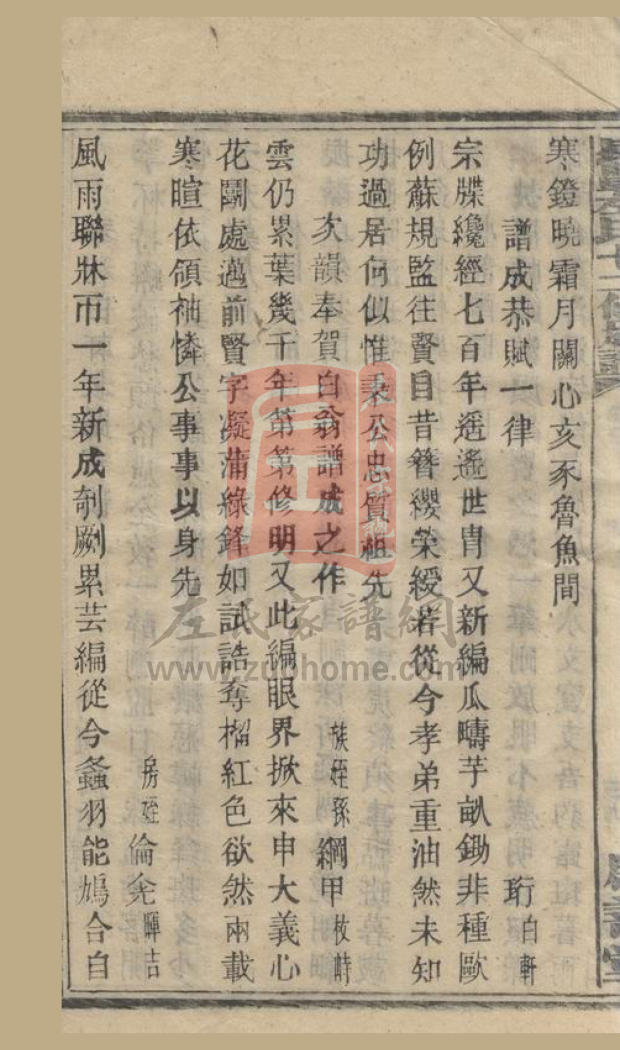 寒鐙曉霜月關心亥豕魯魚間
譜成恭賦一律 珩白軒
宗牒纔經七百年遥遥世胄又新編瓜疇芋畝鋤非種歐
例蘇規監往賢目昔簪纓榮綬若從今孝弟重油然未知
功過居何似惟秉公忠質祖先
次韻奉賀白翁譜成之作 族姪孫綱甲枚時
雲仍累葉幾千年第第修明又此編眼界掀來申大義心
花闢處邁前賢字凝蒲綠鋒如試誥奪榴紅色欲然兩載
寒暄依領袖憐公事事以身先
房姪倫尭暉吉
風雨聯牀帀一年新成剞劂累芸編從今螽羽能鳩合自
左氏家譜網
www.zuohome.com